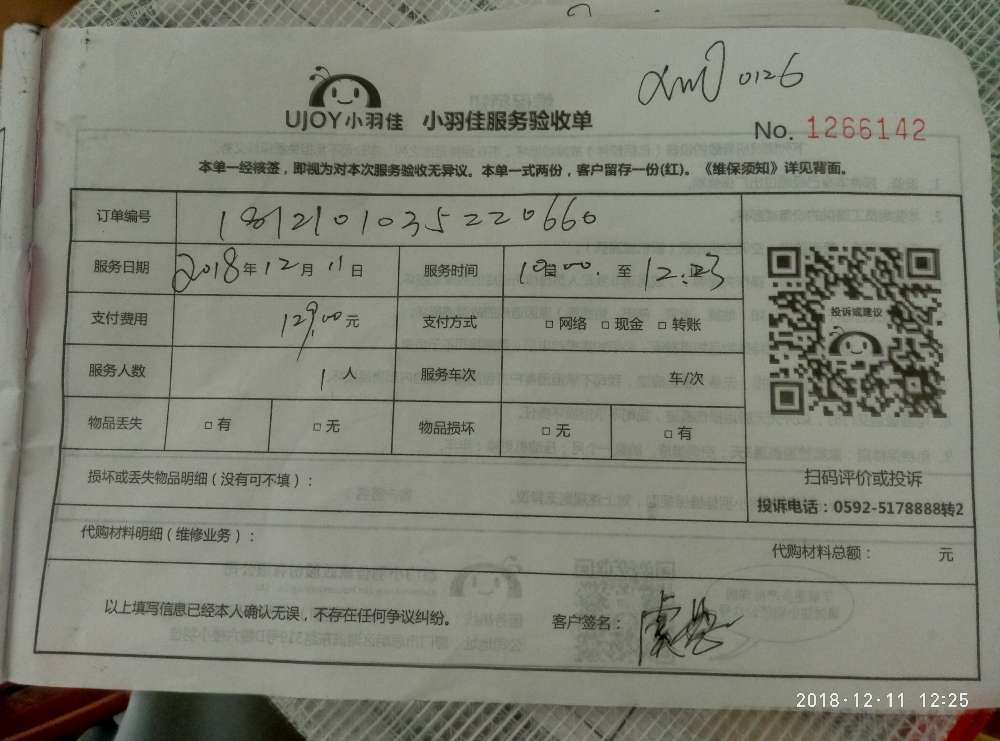 xm 0126
UJOY小羽佳 小羽佳服务验收单
No. 1266142
本单一经核签，即视为对本次服务验收无异议。本单一式两份，客户留存一份(红)。《维保须知》详见背面。
订单编号 1812101035220660
服务日期 2018年12月11日 服务时间 10:00 至 12:23
支付费用 129.00元 支付方式 □网络 □现金 □转账
服务人数 1人 服务车次 车/次
物品丢失 □有 □无 物品损坏 □无 □有
投诉或建议
扫码评价或投诉
投诉电话：0592-5178888转2
损坏或丢失物品明细（没有可不填）：
代购材料明细（维修业务）：
代购材料总额： 元
以上填写信息已经本人确认无误，不存在任何争议纠纷。 客户签名：
2018·12·11 12:25